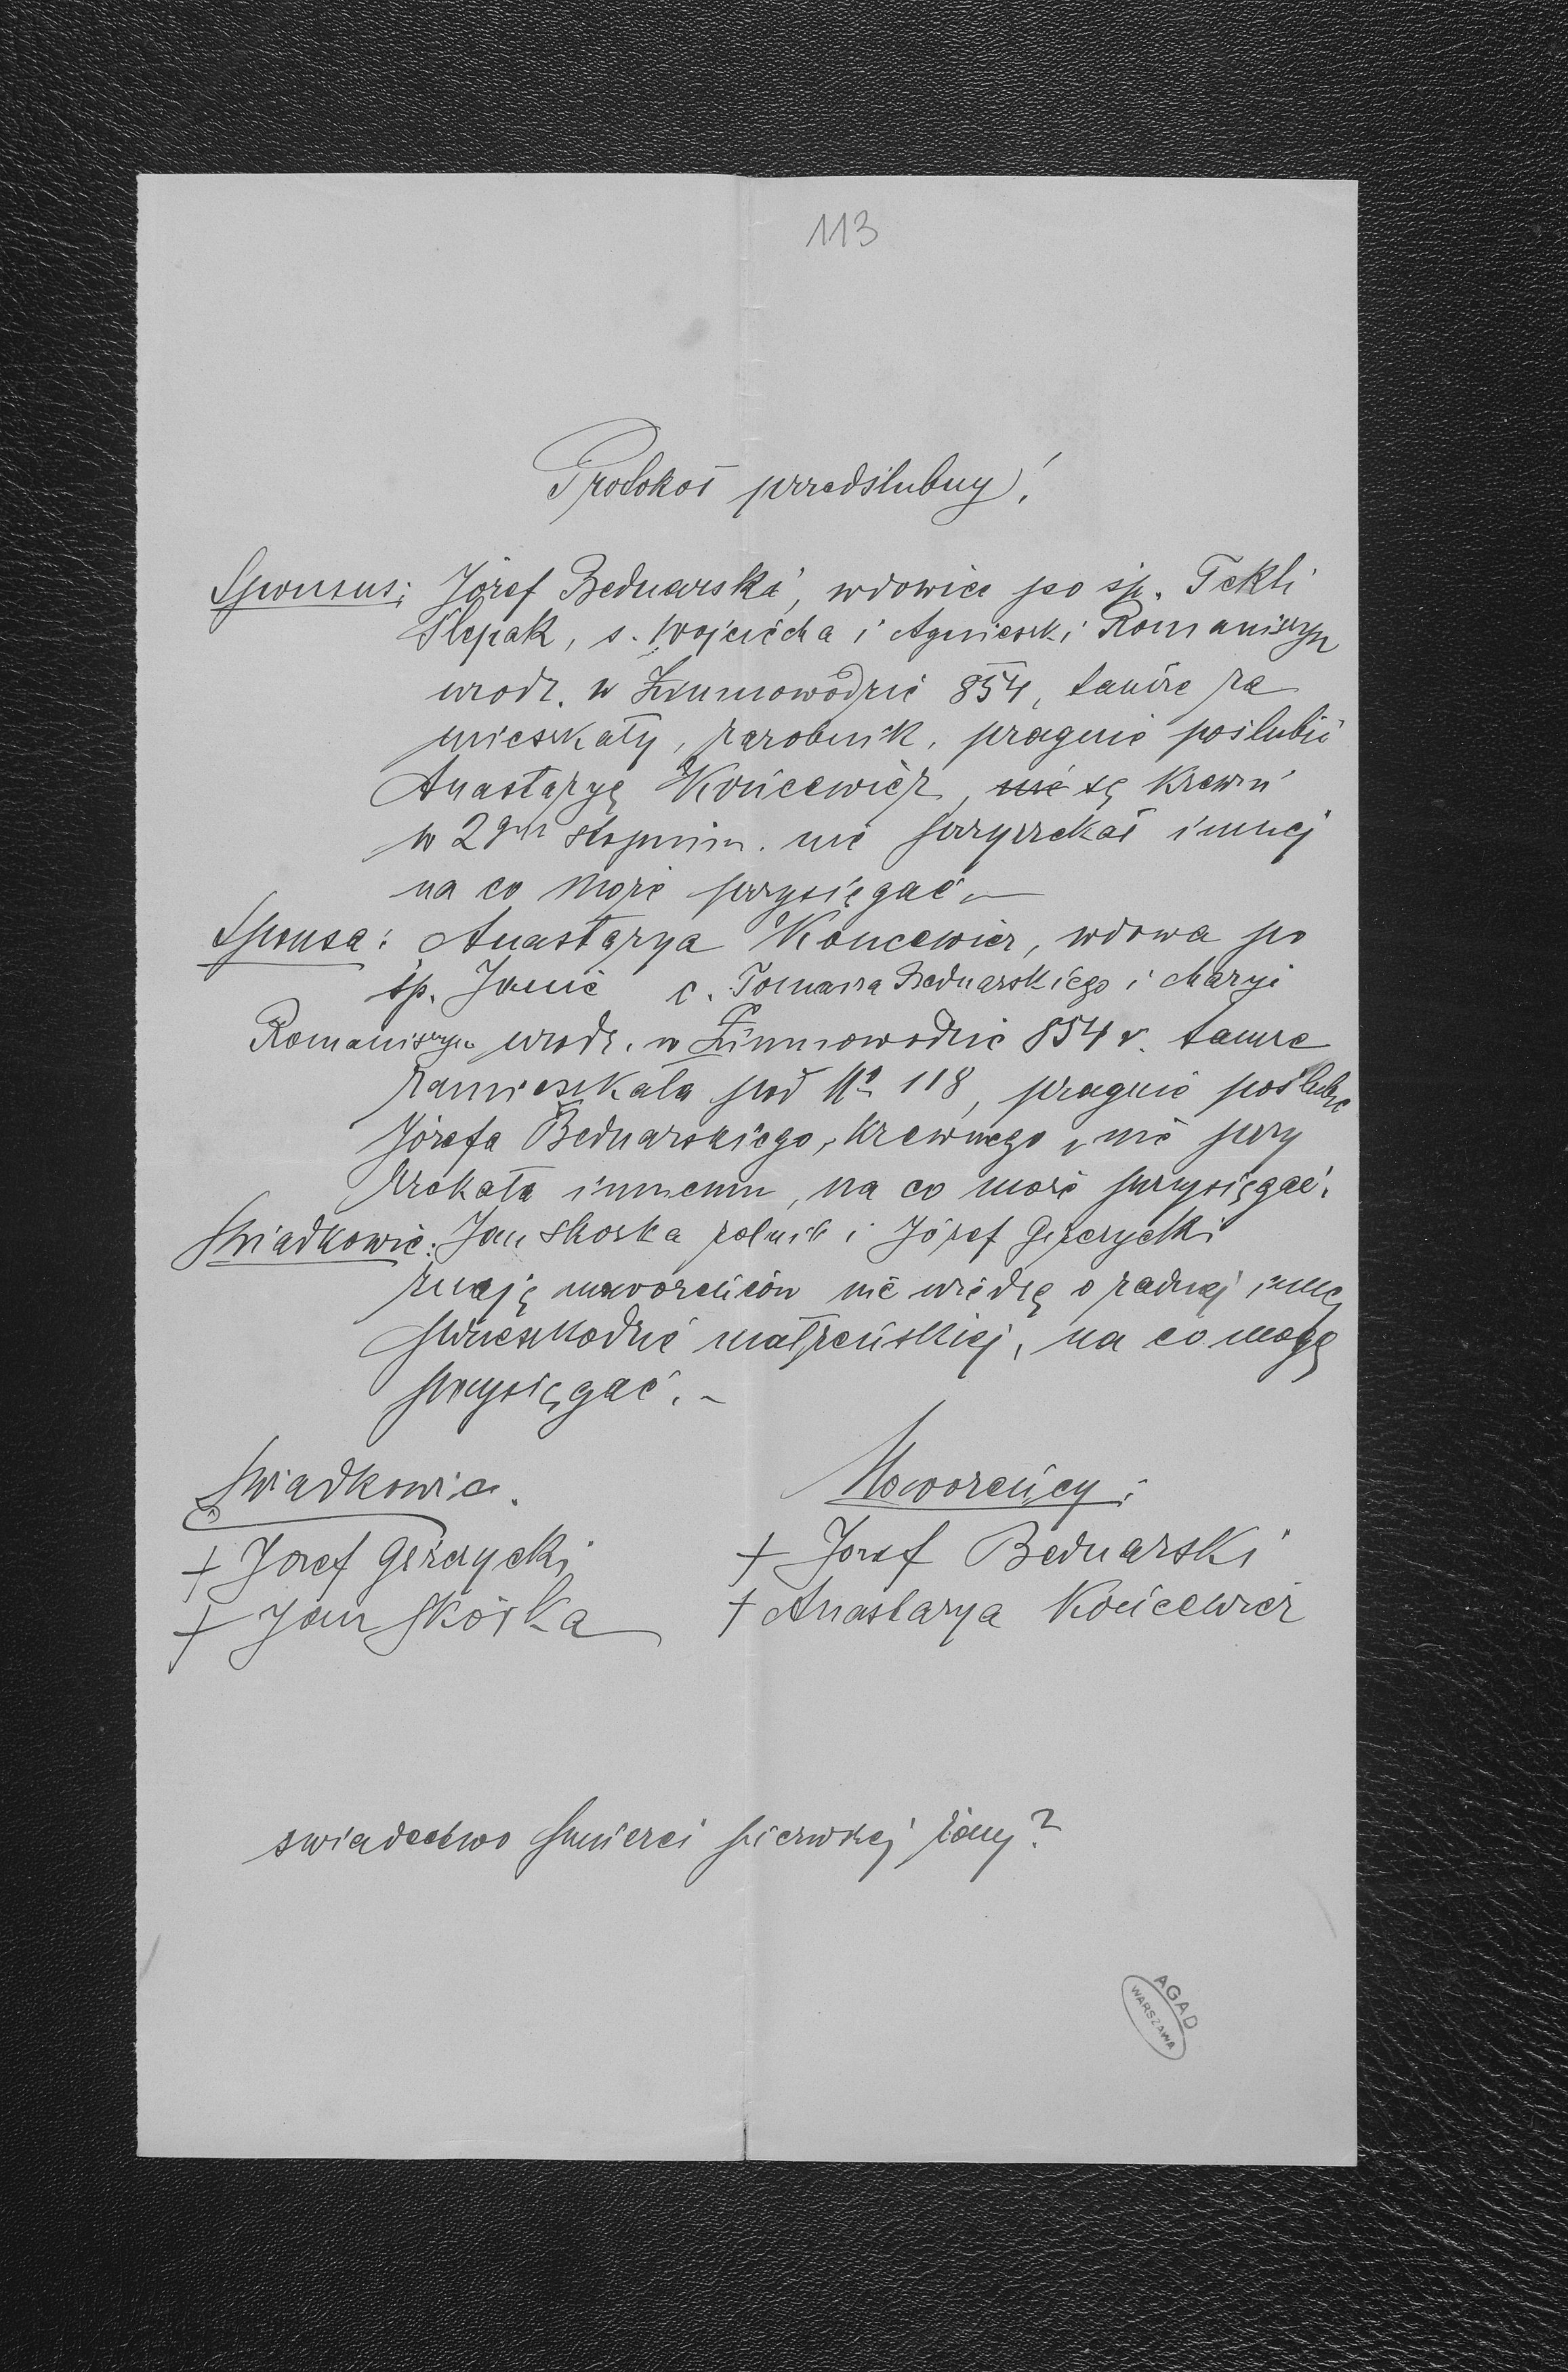 113
Protokół przedślubny!
Sponsus: Józef Bednarski, wdowiec po śp. Tekli
Ślepak, s. Wojciecha i Agnieszki Romaniszyn
urodz. w Zimnowodzie 854, tamże za
mieszkały, zarobnik, pragnie poślubić
Anastazyę Kończewicz, nie są krewni
w 2gim stopniu. nie przyrzekał innej
na co może przysięgać. –
Sponsa: Anastazya Koncewicz, wdowa po
śp. Janie c. Tomasza Bednarskiego i Maryi
Romaniszyn urodz. w Zimnowodzie 854 r. tamże
zamieszkała pod No 118, pragnie poślubić
Józefa Bednarskiego, krewnego, nie przy
rzekała innemu, na co może przysięgać.
Świadkowie: Jan Skorka rolnik i Józef Gierzycki
znają nowożeńców nie wiedzą o żadnej innej
przeszkodzie małżeńskiej, na co mogą
przysięgać. –
Świadkowie.
Nowożeńcy:
+ Józef Gierzycki
+ Józef Bednarski
+ Jan Skórka
+ Anastazya Końcewicz
swiadectwo śmierci pierwszej żony?
AGAD
WARSZAWA